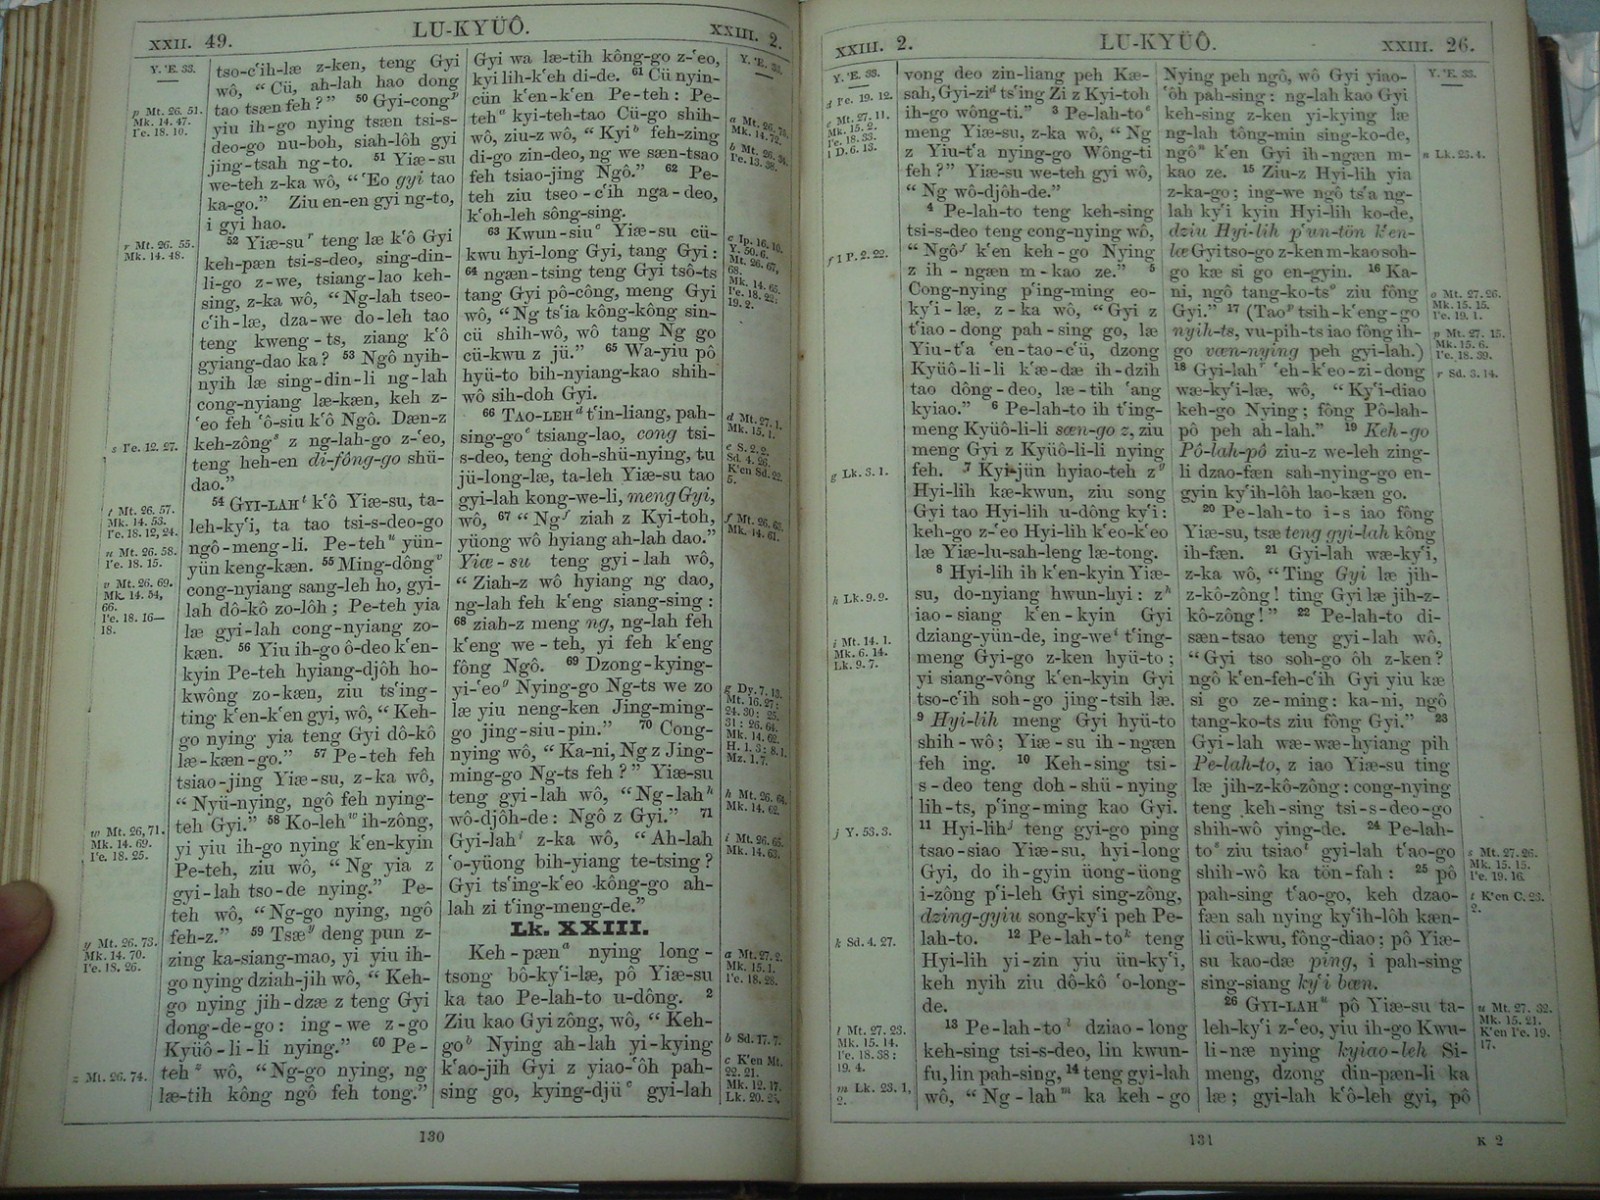 XXII. 49.
LU-KYÜÔ.
XXIII. 2.
Y. 'E. 33.
p Mt. 26. 51.
Mk. 14. 47.
I'e. 18. 10.
r Mt. 26. 55.
Mk. 14. 48.
s I'e. 12. 27.
t Mt. 26. 57.
Mk. 14. 53.
I'e. 18. 12, 24.
u Mt. 26. 58.
I'e. 18. 15.
v Mt. 26. 69.
Mk. 14. 54,
66.
I'e. 18. 16—
18.
w Mt. 26, 71.
Mk. 14. 69.
I'e. 18. 25.
y Mt. 26. 73.
Mk. 14. 70.
I'e. 18. 26.
z Mt. 26. 74.
tso-c'ih-læ z-ken, teng Gyi
wô, “ Cü, ah-lah hao dong
tao tsæn feh ? ” 50 Gyi-cong p
yiu ih-go nying tsæn tsi-s-
deo-go nu-boh, siah-lôh gyi
jing-tsah ng-to. 51 Yiæ-su
we-teh z-ka wô, “ 'Eo gyi tao
ka-go.” Ziu en-en gyi ng-to,
i gyi hao.
52 Yiæ-su r teng læ k'ô Gyi
keh-pæn tsi-s-deo, sing-din-
li-go z-we, tsiang-lao keh-
sing, z-ka wô, “ Ng-lah tseo-
c'ih-læ, dza-we do-leh tao
teng kweng-ts, ziang k'ô
gyiang-dao ka ? 53 Ngô nyih-
nyih læ sing-din-li ng-lah
cong-nyiang læ-kæn, keh z-
'eo feh 'ô-siu k'ô Ngô. Dæn-z
keh-zông s z ng-lah-go z-'eo,
teng heh-en di-fông-go shü-
dao.”
54 GYI-LAH t k'ô Yiæ-su, ta-
leh-ky'i, ta tao tsi-s-deo-go
ngô-meng-li. Pe-teh u yün-
yün keng-kæn. 55 Ming-dông v
cong-nyiang sang-leh ho, gyi-
lah dô-kô zo-lôh ; Pe-teh yia
læ gyi-lah cong-nyiang zo-
kæn. 56 Yiu ih-go ô-deo k'en-
kyin Pe-teh hyiang-djôh ho-
kwông zo-kæn, ziu ts'ing-
ting k'en-k'en gyi, wô, “ Keh-
go nying yia teng Gyi dô-kô
læ-kæn-go.” 57 Pe-teh feh
tsiao-jing Yiæ-su, z-ka wô,
“ Nyü-nying, ngô feh nying-
teh Gyi.” 58 Ko-leh w ih-zông,
yi yiu ih-go nying k'en-kyin
Pe-teh, ziu wô, “ Ng yia z
gyi-lah tso-de nying.” Pe-
teh wô, “ Ng-go nying, ngô
feh-z.” 59 Tsæ y deng pun z-
zing ka-siang-mao, yi yiu ih-
go nying dziah-jih wô, “ Keh-
go nying jih-dzæ z teng Gyi
dong-de-go : ing-we z-go
Kyüô-li-li nying.” 60 Pe-
teh z wô, “ Ng-go nying, ng
læ-tih kông ngô feh tong.”
Gyi wa læ-tih kông-go z-'eo,
kyi lih-k'eh di-de. 61 Cü nyin-
cün k'en-k'en Pe-teh : Pe-
teh a kyi-teh-tao Cü-go shih-
wô, ziu-z wô, “ Kyi b feh-zing
di-go zin-deo, ng we sæn-tsao
feh tsiao-jing Ngô.” 62 Pe-
teh ziu tseo-c'ih nga-deo,
k'oh-leh sông-sing.
63 Kwun-siu c Yiæ-su cü-
kwu hyi-long Gyi, tang Gyi :
64 ngæn-tsing teng Gyi tsô-ts
tang Gyi pô-công, meng Gyi
wô, “ Ng ts'ia kông-kông sin-
cü shih-wô, wô tang Ng go
cü-kwu z jü.” 65 Wa-yiu pô
hyü-to bih-nyiang-kao shih-
wô sih-doh Gyi.
66 TAO-LEH d t'in-liang, pah-
sing-go e tsiang-lao, cong tsi-
s-deo, teng doh-shü-nying, tu
jü-long-læ, ta-leh Yiæ-su tao
gyi-lah kong-we-li, meng Gyi,
wô, 67 “ Ng f ziah z Kyi-toh,
yüong wô hyiang ah-lah dao.”
Yiæ-su teng gyi-lah wô,
“ Ziah-z wô hyiang ng dao,
ng-lah feh k'eng siang-sing :
68 ziah-z meng ng, ng-lah feh
k'eng we-teh, yi feh k'eng
fông Ngô. 69 Dzong-kying-
yi-'eo g Nying-go Ng-ts we zo
læ yiu neng-ken Jing-ming-
go jing-siu-pin.” 70 Cong-
nying wô, “ Ka-ni, Ng z Jing-
ming-go Ng-ts feh ? ” Yiæ-su
teng gyi-lah wô, “ Ng-lah h
wô-djôh-de : Ngô z Gyi.” 71
Gyi-lah i z-ka wô, “ Ah-lah
'o-yüong bih-yiang te-tsing ?
Gyi ts'ing-k'eo kông-go ah-
lah zi t'ing-meng-de.”
Lk. XXIII.
Keh-pæn a nying long-
tsong bô-ky'i-læ, pô Yiæ-su
ka tao Pe-lah-to u-dông. 2
Ziu kao Gyi zông, wô, “ Keh-
go b Nying ah-lah yi-kying
k'ao-jih Gyi z yiao-'ôh pah-
sing go, kying-djü c gyi-lah
Y. 'E. 33.
a Mt. 26. 75.
Mk. 14. 72.
b Mt. 26. 34.
I'e. 13. 38.
c Ip. 16. 10.
Y. 50. 6.
Mt. 26. 67,
68.
Mk. 14. 65.
I'e. 18. 22:
19. 2.
d Mt. 27. 1.
Mk. 15. 1.
e S. 2. 2.
Sd. 4. 26.
K'en Sd. 22.
5.
f Mt. 26. 63.
Mk. 14. 61.
g Dy. 7. 13.
Mt. 16. 27:
24. 30: 25.
31: 26. 64.
Mk. 14. 62.
H. 1. 3: 8. 1.
Mz. 1. 7.
h Mt. 26. 64.
Mk. 14. 62.
i Mt. 26. 65.
Mk. 14. 63.
a Mt. 27. 2.
Mk. 15. 1.
I'e. 18. 28.
b Sd. 17. 7.
c K'en Mt.
22. 21.
Mk. 12. 17.
Lk. 20. 25.
130
XXIII. 2.
LU-KYÜÔ.
XXIII. 26.
Y. 'E. 33.
d I'e. 19. 12.
e Mt. 27. 11.
Mk. 15. 2.
I'e. 18. 33.
1 D. 6. 13.
f 1 P. 2. 22.
g Lk. 3. 1.
h Lk. 9. 9.
i Mt. 14. 1.
Mk. 6. 14.
Lk. 9. 7.
j Y. 53. 3.
k Sd. 4. 27.
l Mt. 27. 23.
Mk. 15. 14.
I'e. 18. 38:
19. 4.
m Lk. 23. 1,
2.
vong deo zin-liang peh Kæ-
sah, Gyi-zi d ts'ing Zi z Kyi-toh
ih-go wông-ti.” 3 Pe-lah-to e
meng Yiæ-su, z-ka wô, “ Ng
z Yiu-t'a nying-go Wông-ti
feh ? ” Yiæ-su we-teh gyi wô,
“ Ng wô-djôh-de.”
4 Pe-lah-to teng keh-sing
tsi-s-deo teng cong-nying wô,
“ Ngô f k'en keh-go Nying
z ih-ngæn m-kao ze.” 5
Cong-nying p'ing-ming eo-
ky'i-læ, z-ka wô, “ Gyi z
t'iao-dong pah-sing go, læ
Yiu-t'a 'en-tao-c'ü, dzong
Kyüô-li-li k'æ-dæ ih-dzih
tao dông-deo, læ-tih 'ang
kyiao.” 6 Pe-lah-to ih t'ing-
meng Kyüô-li-li sæn-go z, ziu
meng Gyi z Kyüô-li-li nying
feh. 7 Kyi-jün hyiao-teh z g
Hyi-lih kæ-kwun, ziu song
Gyi tao Hyi-lih u-dông ky'i :
keh-go z-'eo Hyi-lih k'eo-k'eo
læ Yiæ-lu-sah-leng læ-tong.
8 Hyi-lih ih k'en-kyin Yiæ-
su, do-nyiang hwun-hyi : z h
iao-siang k'en-kyin Gyi
dziang-yün-de, ing-we i t'ing-
meng Gyi-go z-ken hyü-to ;
yi siang-vông k'en-kyin Gyi
tso-c'ih soh-go jing-tsih læ.
9 Hyi-lih meng Gyi hyü-to
shih-wô ; Yiæ-su ih-ngæn
feh ing. 10 Keh-sing tsi-
s-deo teng doh-shü-nying
lih-ts, p'ing-ming kao Gyi.
11 Hyi-lih j teng gyi-go ping
tsao-siao Yiæ-su, hyi-long
Gyi, do ih-gyin üong-üong
i-zông p'i-leh Gyi sing-zông,
dzing-gyiu song-ky'i peh Pe-
lah-to. 12 Pe-lah-to k teng
Hyi-lih yi-zin yiu ün-ky'i,
keh nyih ziu dô-kô 'o-long-
de.
13 Pe-lah-to l dziao-long
keh-sing tsi-s-deo, lin kwun-
fu, lin pah-sing, 14 teng gyi-lah
wô, “ Ng-lah m ka keh-go
Nying peh ngô, wô Gyi yiao-
'ôh pah-sing : ng-lah kao Gyi
keh-sing z-ken yi-kying læ
ng-lah tông-min sing-ko-de,
ngô n k'en Gyi ih-ngæn m-
kao ze. 15 Ziu-z Hyi-lih yia
z-ka-go ; ing-we ngô ts'a ng-
lah ky'i kyin Hyi-lih ko-de,
dziu Hyi-lih p'un-tön k'en-
læ Gyi tso-go z-ken m-kao soh-
go kæ si go en-gyin. 16 Ka-
ni, ngô tang-ko-ts o ziu fông
Gyi.” 17 (Tao p tsih-k'eng-go
nyih-ts, vu-pih-ts iao fông ih-
go væn-nying peh gyi-lah.)
18 Gyi-lah r 'eh-k'eo-zi-dong
wæ-ky'i-læ, wô, “ Ky'i-diao
keh-go Nying ; fông Pô-lah-
pô peh ah-lah.” 19 Keh-go
Pô-lah-pô ziu-z we-leh zing-
li dzao-fæn sah-nying-go en-
gyin ky'ih-lôh lao-kæn go.
20 Pe-lah-to i-s iao fông
Yiæ-su, tsæ teng gyi-lah kông
ih-fæn. 21 Gyi-lah wæ-ky'i,
z-ka wô, “ Ting Gyi læ jih-
z-kô-zông ! ting Gyi læ jih-z-
kô-zông ! ” 22 Pe-lah-to di-
sæn-tsao teng gyi-lah wô,
“ Gyi tso soh-go ôh z-ken ?
ngô k'en-feh-c'ih Gyi yiu kæ
si go ze-ming : ka-ni, ngô
tang-ko-ts ziu fông Gyi.” 23
Gyi-lah wæ-wæ-hyiang pih
Pe-lah-to, z iao Yiæ-su ting
læ jih-z-kô-zông : cong-nying
teng keh-sing tsi-s-deo-go
shih-wô ying-de. 24 Pe-lah-
to s ziu tsiao t gyi-lah t'ao-go
shih-wô ka tön-fah : 25 pô
pah-sing t'ao-go, keh dzao-
fæn sah nying ky'ih-lôh kæn-
li cü-kwu, fông-diao ; pô Yiæ-
su kao-dæ ping, i pah-sing
sing-siang ky'i bæn.
26 GYI-LAH u pô Yiæ-su ta-
leh-ky'i z-'eo, yiu ih-go Kwu-
li-næ nying kyiao-leh Si-
meng, dzong din-pæn-li ka
læ ; gyi-lah k'ô-leh gyi, pô
Y. 'E. 33.
n Lk. 23. 4.
o Mt. 27. 26.
Mk. 15. 15.
I'e. 19. 1.
p Mt. 27. 15.
Mk. 15. 6.
I'e. 18. 39.
r Sd. 3. 14.
s Mt. 27. 26.
Mk. 15. 15.
I'e. 19. 16.
t K'en C. 23.
2.
u Mt. 27. 32.
Mk. 15. 21.
K'en I'e. 19.
17.
131
K 2